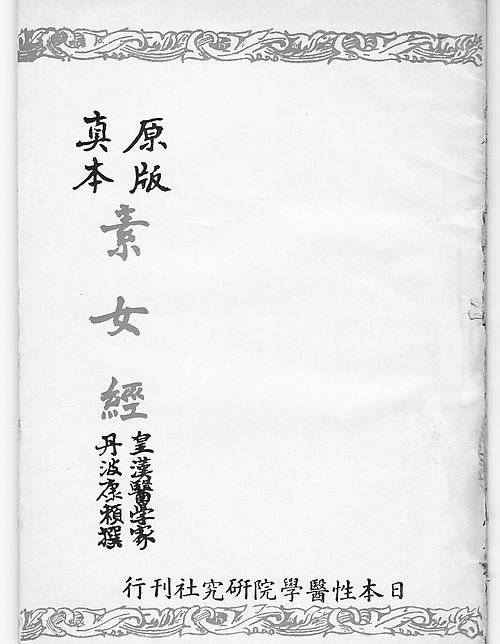 原版
真本
素女經
皇漢醫学家
丹波康頼撰
日本性醫學院研究社刊行